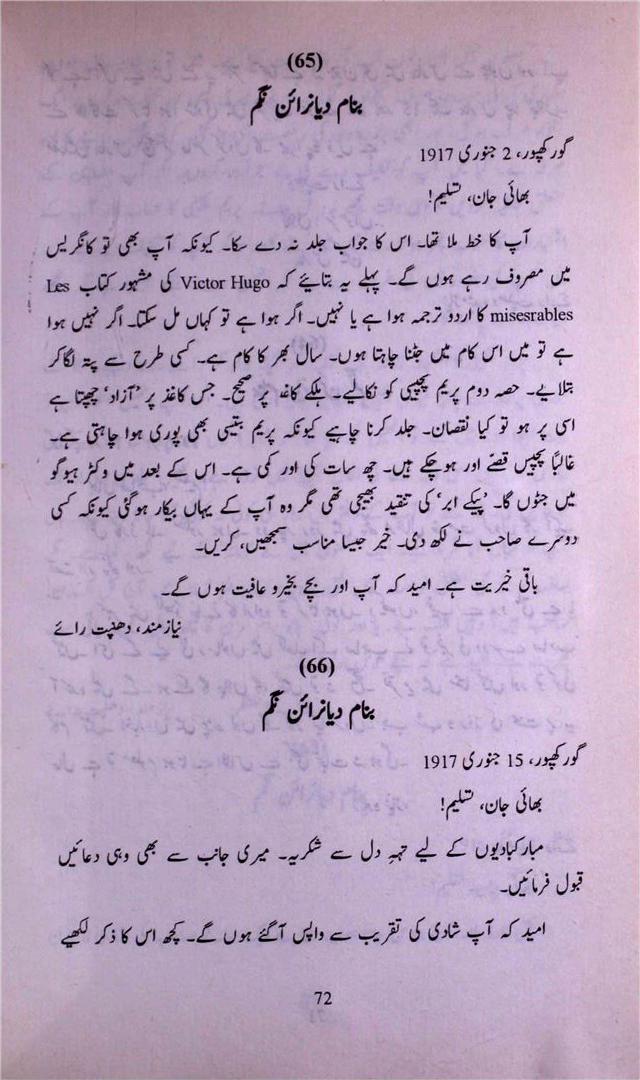 (65)
بنام دیانرائن نگم
گورکھپور، 2 جنوری 1917
بھائی جان، تسلیم!
آپ کا خط ملا تھا۔ اس کا جواب جلد نہ دے سکا۔ کیونکہ آپ بھی تو کانگریس
میں مصروف رہے ہوں گے۔ پہلے یہ بتائیے کہ Victor Hugo کی مشہور کتاب Les
misesrables کا اردو ترجمہ ہوا ہے یا نہیں۔ اگر ہوا ہے تو کہاں مل سکتا۔ اگر نہیں ہوا
ہے تو میں اس کام میں جٹنا چاہتا ہوں۔ سال بھر کا کام ہے۔ کسی طرح سے پتہ لگاکر
بتلایے۔ حصہ دوم پریم پچیسی کو نکالیے۔ ہلکے کاغذ پر صحیح۔ جس کاغذ پر ’آزاد‘ چھپتا ہے
اسی پر ہو تو کیا نقصان۔ جلد کرنا چاہیے کیونکہ پریم بتیسی بھی پوری ہوا چاہتی ہے۔
غالباً پچیس قصّے اور ہوچکے ہیں۔ چھ سات کی اور کمی ہے۔ اس کے بعد میں وکٹر ہیوگو
میں جٹوں گا۔ ’پیکے ابر‘ کی تنقید بھیجی تھی مگر وہ آپ کے یہاں بیکار ہوگئی کیونکہ کسی
دوسرے صاحب نے لکھ دی۔ خیر جیسا مناسب سمجھیں، کریں۔
باقی خیریت ہے۔ امید کہ آپ اور بچے بخیرو عافیت ہوں گے۔
نیازمند، دھنپت رائے
(66)
بنام دیانرائن نگم
گورکھپور، 15 جنوری 1917
بھائی جان، تسلیم!
مبارکبادیوں کے لیے تہہِ دل سے شکریہ۔ میری جانب سے بھی وہی دعائیں
قبول فرمائیں۔
امید کہ آپ شادی کی تقریب سے واپس آگئے ہوں گے۔ کچھ اس کا ذکر لکھیے
72